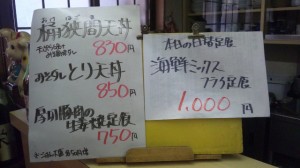 桶狭間天丼
890円
みそダレとり天丼
850円
厚切豚肉の
生姜焼定食
750円
本日の日替定食
海鮮ミックス
フライ定食
1,000円